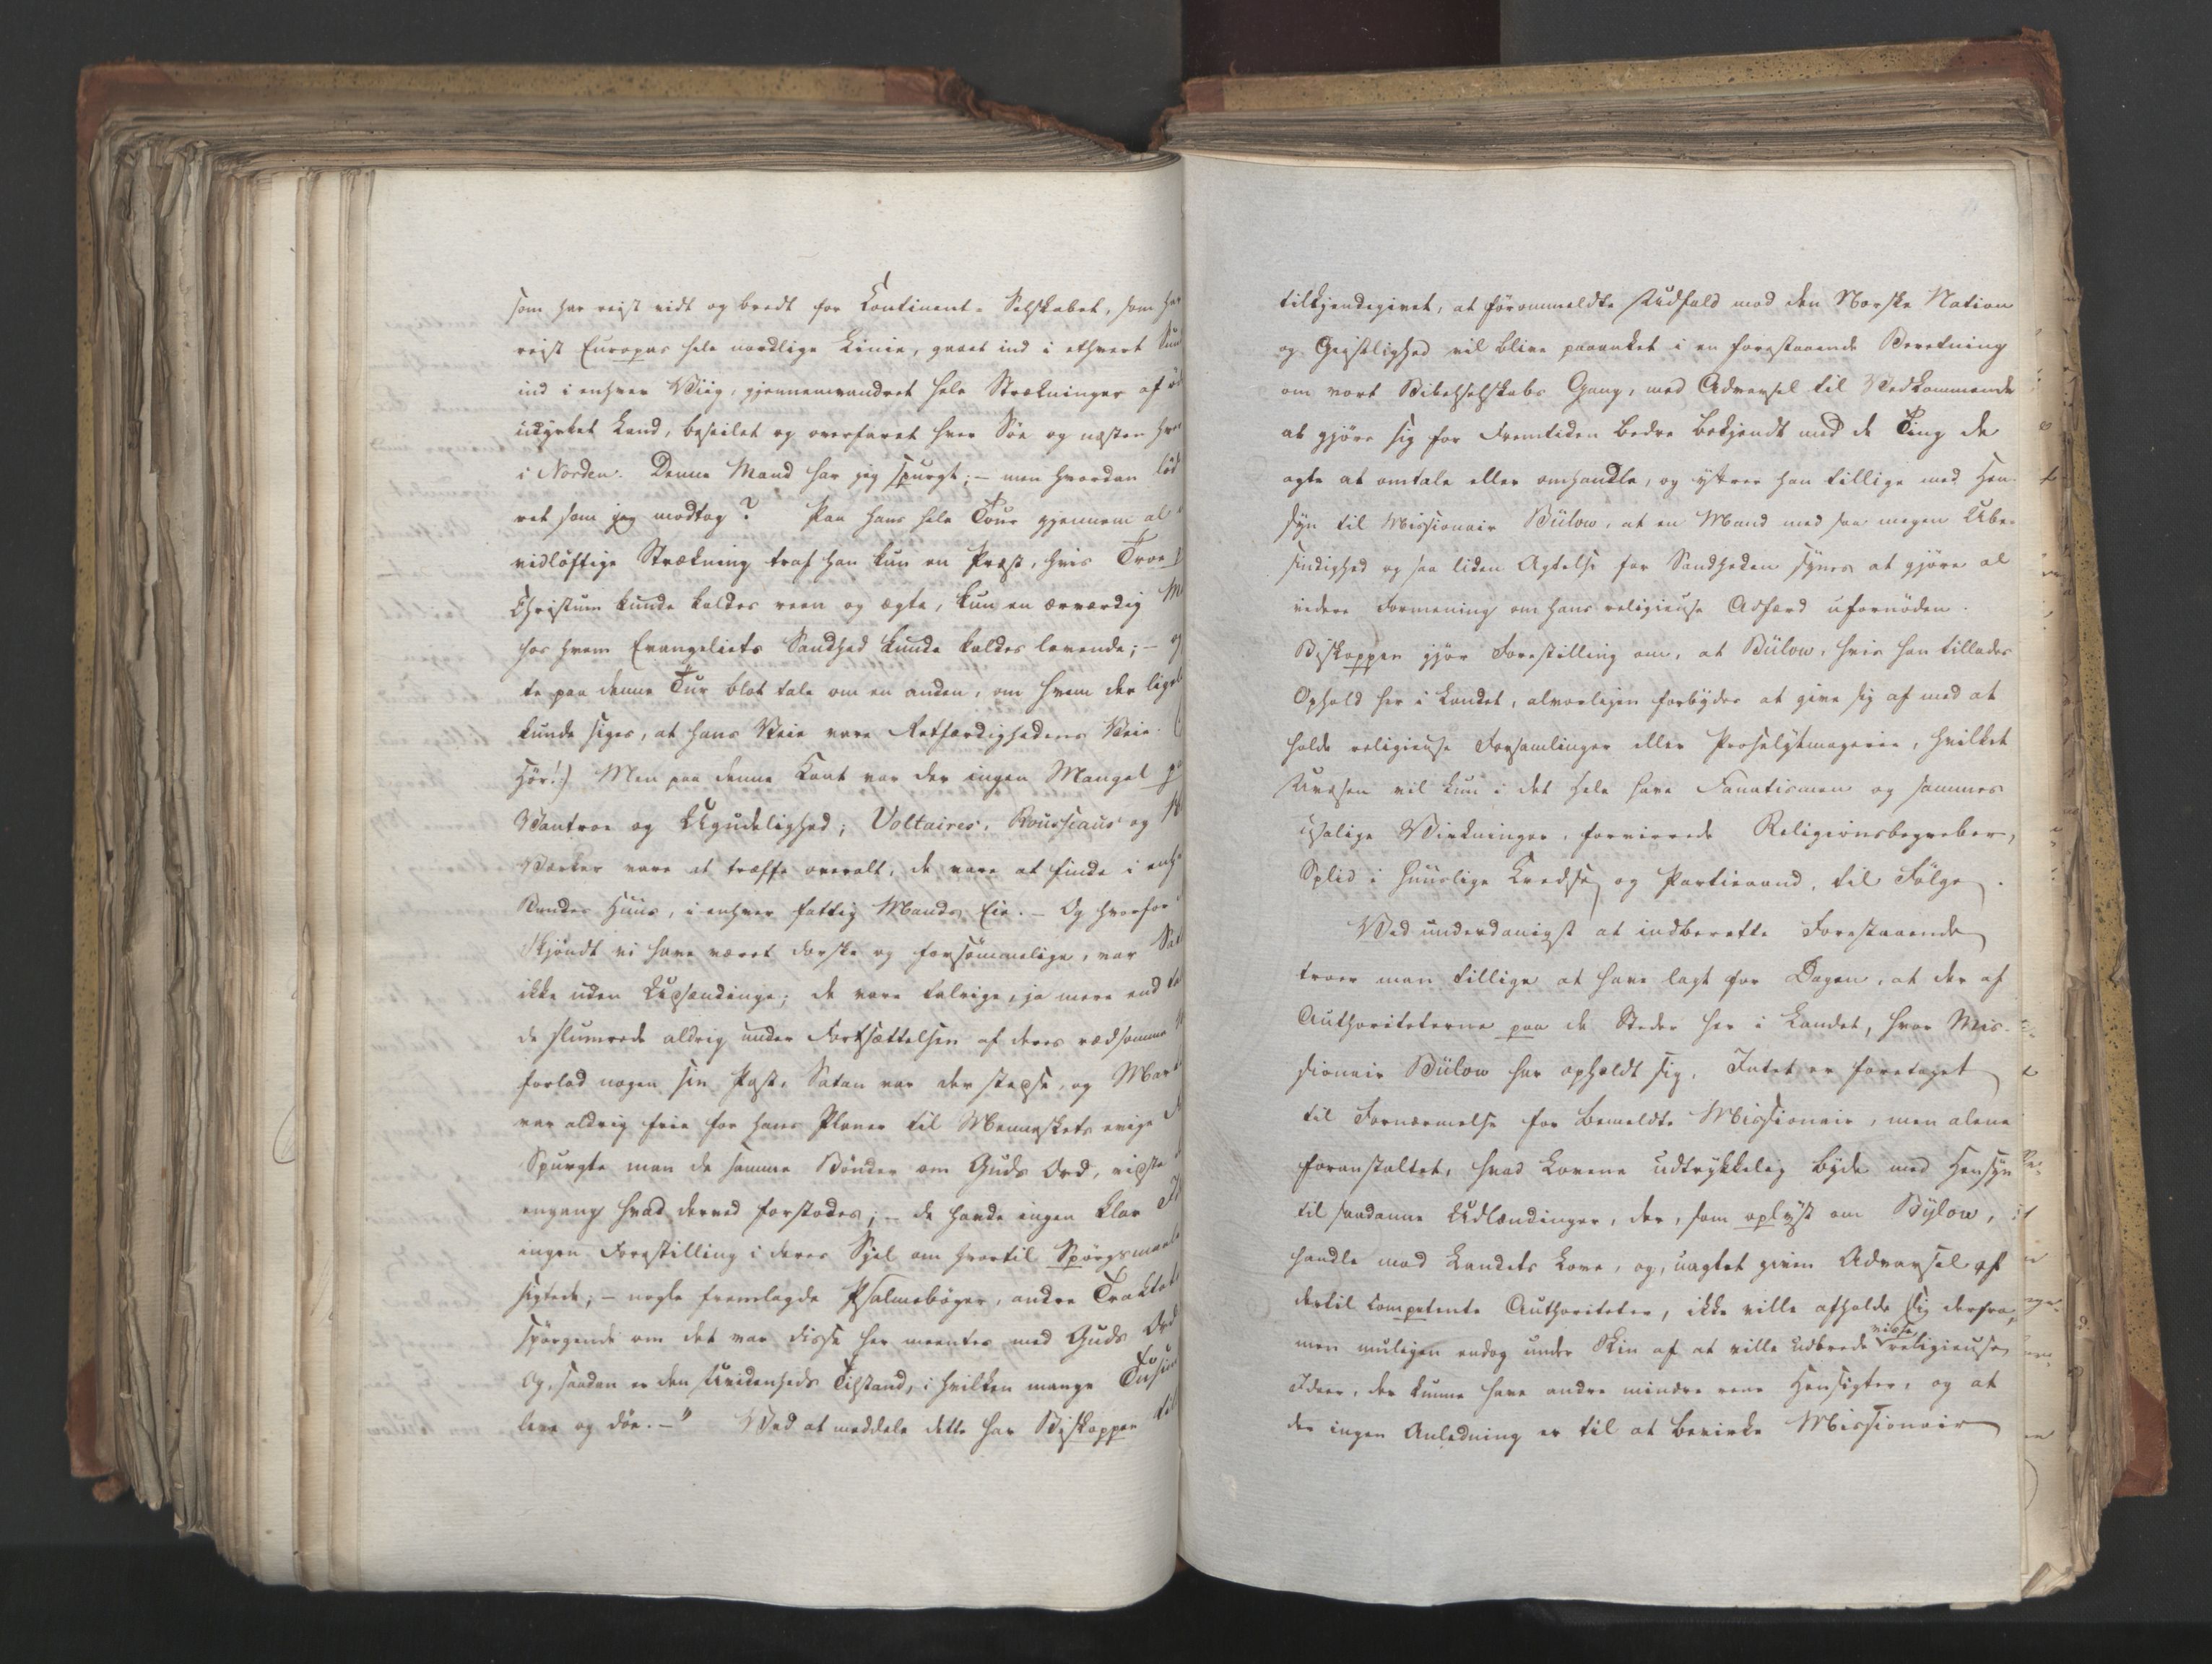 som har reist vidt og bredt for Continent-Selskabet, som har
reist Europas hele nordlige Linie, gaaet ind i ethvert Sund
ind i enhver Viig, gjennemvandret hele Strækninger af
udyrket Land, beseilet og overfaret hver Søe og næsten hver
i Norden. Denne Mand har jeg spurgt; – men hvordan lød
ret som jeg modtog? Paa hans hele Tour gjennem al
vidløftige Strækning traf han kun en Præst, hvis Troe
Christum kunde kaldes reen og ægte, kun en ærværdig
hos hvem Evangeliets Sandhed kunde kaldes levende; –
te paa denne Tur blot tale om en anden, om hvem der lige
kunde siges, at hans Veie vare Retfærdighedens Veie.
Hör!) Men paa denne Kant var der ingen Mangel
Vantroe og Ugudelighed; Voltaires, Rousseaus og
Værker vare at træffe overalt; de vare at finde i enh
Bondes Huus, i enhver fattig Mands Eie. – Og hvorfor
Skjøndt vi have været dorske og forsømmelige, var
ikke uden Udsendinge; de vare talrige, ja mere end
de slumrede aldrig under Fortsættelsen af deres rædsomme
forlod nogen sin Post, Satan var der stedse, og
var aldrig frie for hans Planer til Menneskets evige
Spurgte man de samme Bønder om Guds Ord, vidste
engang hvad derved forstodes; – de havde ingen klar
ingen Forestilling i deres Sjel om hvortil Spörgsmaal
sigtede; – nogle fremlagde Psalmebøger, andre Traktat
spørgende om det var disse her meentes med Guds Ord
Og, saadan er den Uvidenheds Tilstand, i hvilken mange Tusin
leve og døe. –" Ved at meddele dette har Biskoppen til
tilkjendegivet, at förommeldte Udfald mod den Norske Nation
og Geistlighed vil blive paaanket i en forestaaende Beretning
om vort Bibelselskabs Gang, med Advarsel til Vedkommende
at gjöre sig for Fremtiden bedre bekjendt med de Ting de
agte at omtale eller omhandle, og yttrer han tillige med Hen-
syn til Missionair Bülow, at en Mand med saa megen Ube-
sindighed og saa liden Agtelse for Sandheden synes at gjöre al
videre Formening om hans religieuse Adfærd ufornöden.
Biskoppen gjör Forestilling om, at Bülow, hvis han tillades
Ophold her i Landet, alvorligen forbydes at give sig af med at
holde religieuse Forsamlinger eller Proselytmagerie, hvilket
Uvæsen vil kun i det Hele have Fanatismen og sammes
usalige Virkninger, forvirrede Religionsbegreber,
Splid i huuslige Kredse og Partieaand, til Fölge.
Ved underdanigst at indberette Forestaaende
troer man tillige at have lagt for Dagen, at der af
Authoriteterne paa de Steder her i Landet, hvor Mis-
sionair Bülow har opholdt sig, Intet er foretaget
til Fornærmelse for bemeldte Missionair, men alene
foranstaltet, hvad Lovene udtrykkelig byde med Hensyn
til saadanne Udlændinger, der, som oplyst om Bülow,
handle mod Landets Love, og, uagtet given Advarsel af
dertil competente Authoriteter, ikke ville afholde sig derfra,
men muligen endog under Skin af at ville udbrede visse religieuse
Ideer, der kunne have andre mindre rene Hensigter, og at
der ingen Anledning er til at bevirke Missionair